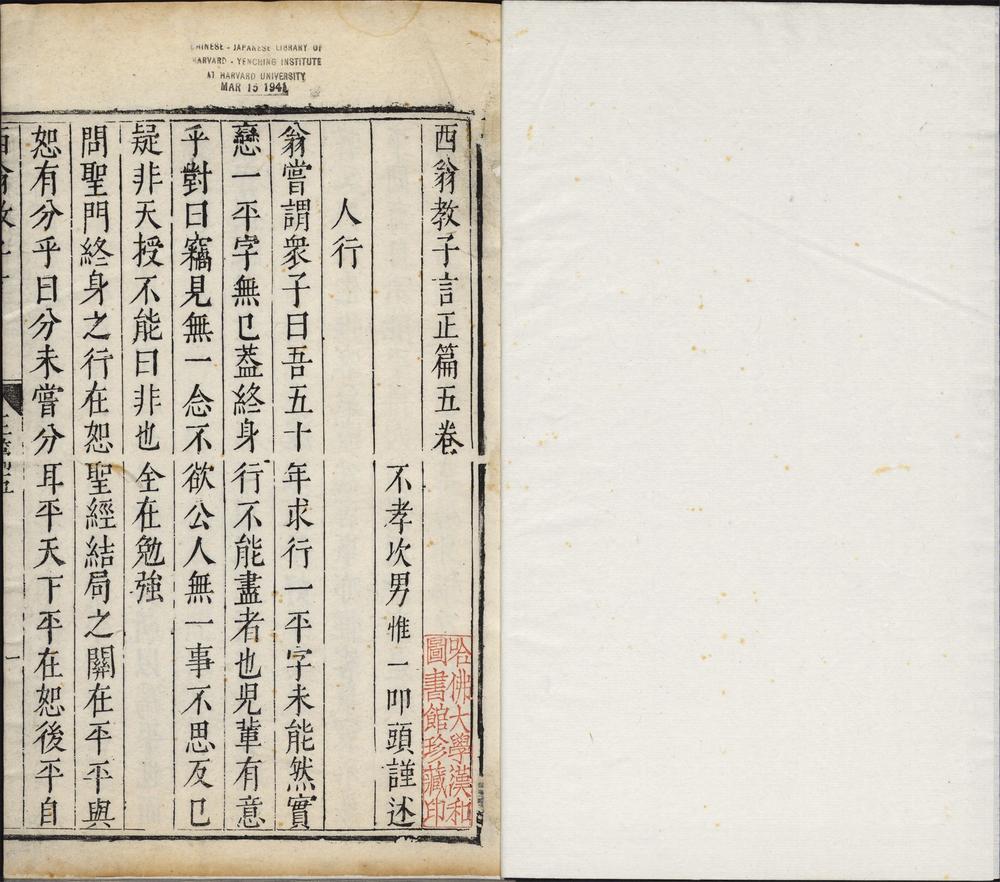 CHINESE - JAPANESE LIBRARY OF
HARVARD - YENCHING INSTITUTE
AT HARVARD UNIVERSITY
MAR 15 1941
西翁教子言正篇五卷
不孝次男惟一叩頭謹述
人行
翁嘗謂衆子曰吾五十年求行一平字未能然實
戀一平字無已葢終身行不能盡者也児輩有意
乎對曰竊見無一念不欲公人無一事不思反已
疑非天授不能曰非也全在勉強
問聖門終身之行在恕聖經結局之關在平平與
恕有分乎曰分未嘗分耳平天下平在恕後平自
西翁教子言
一
哈佛大學漢和
圖書館珍藏印